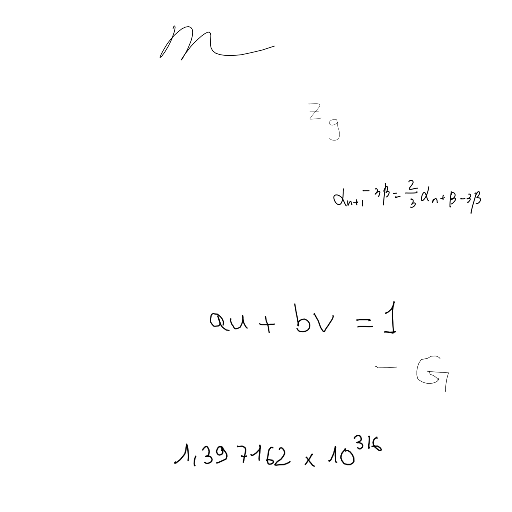 m
z_g
α_{n+1} - 3β = \frac{2}{3} α_n + β - 3β
au + bv = 1
- G
1,397162 × 10^{316}